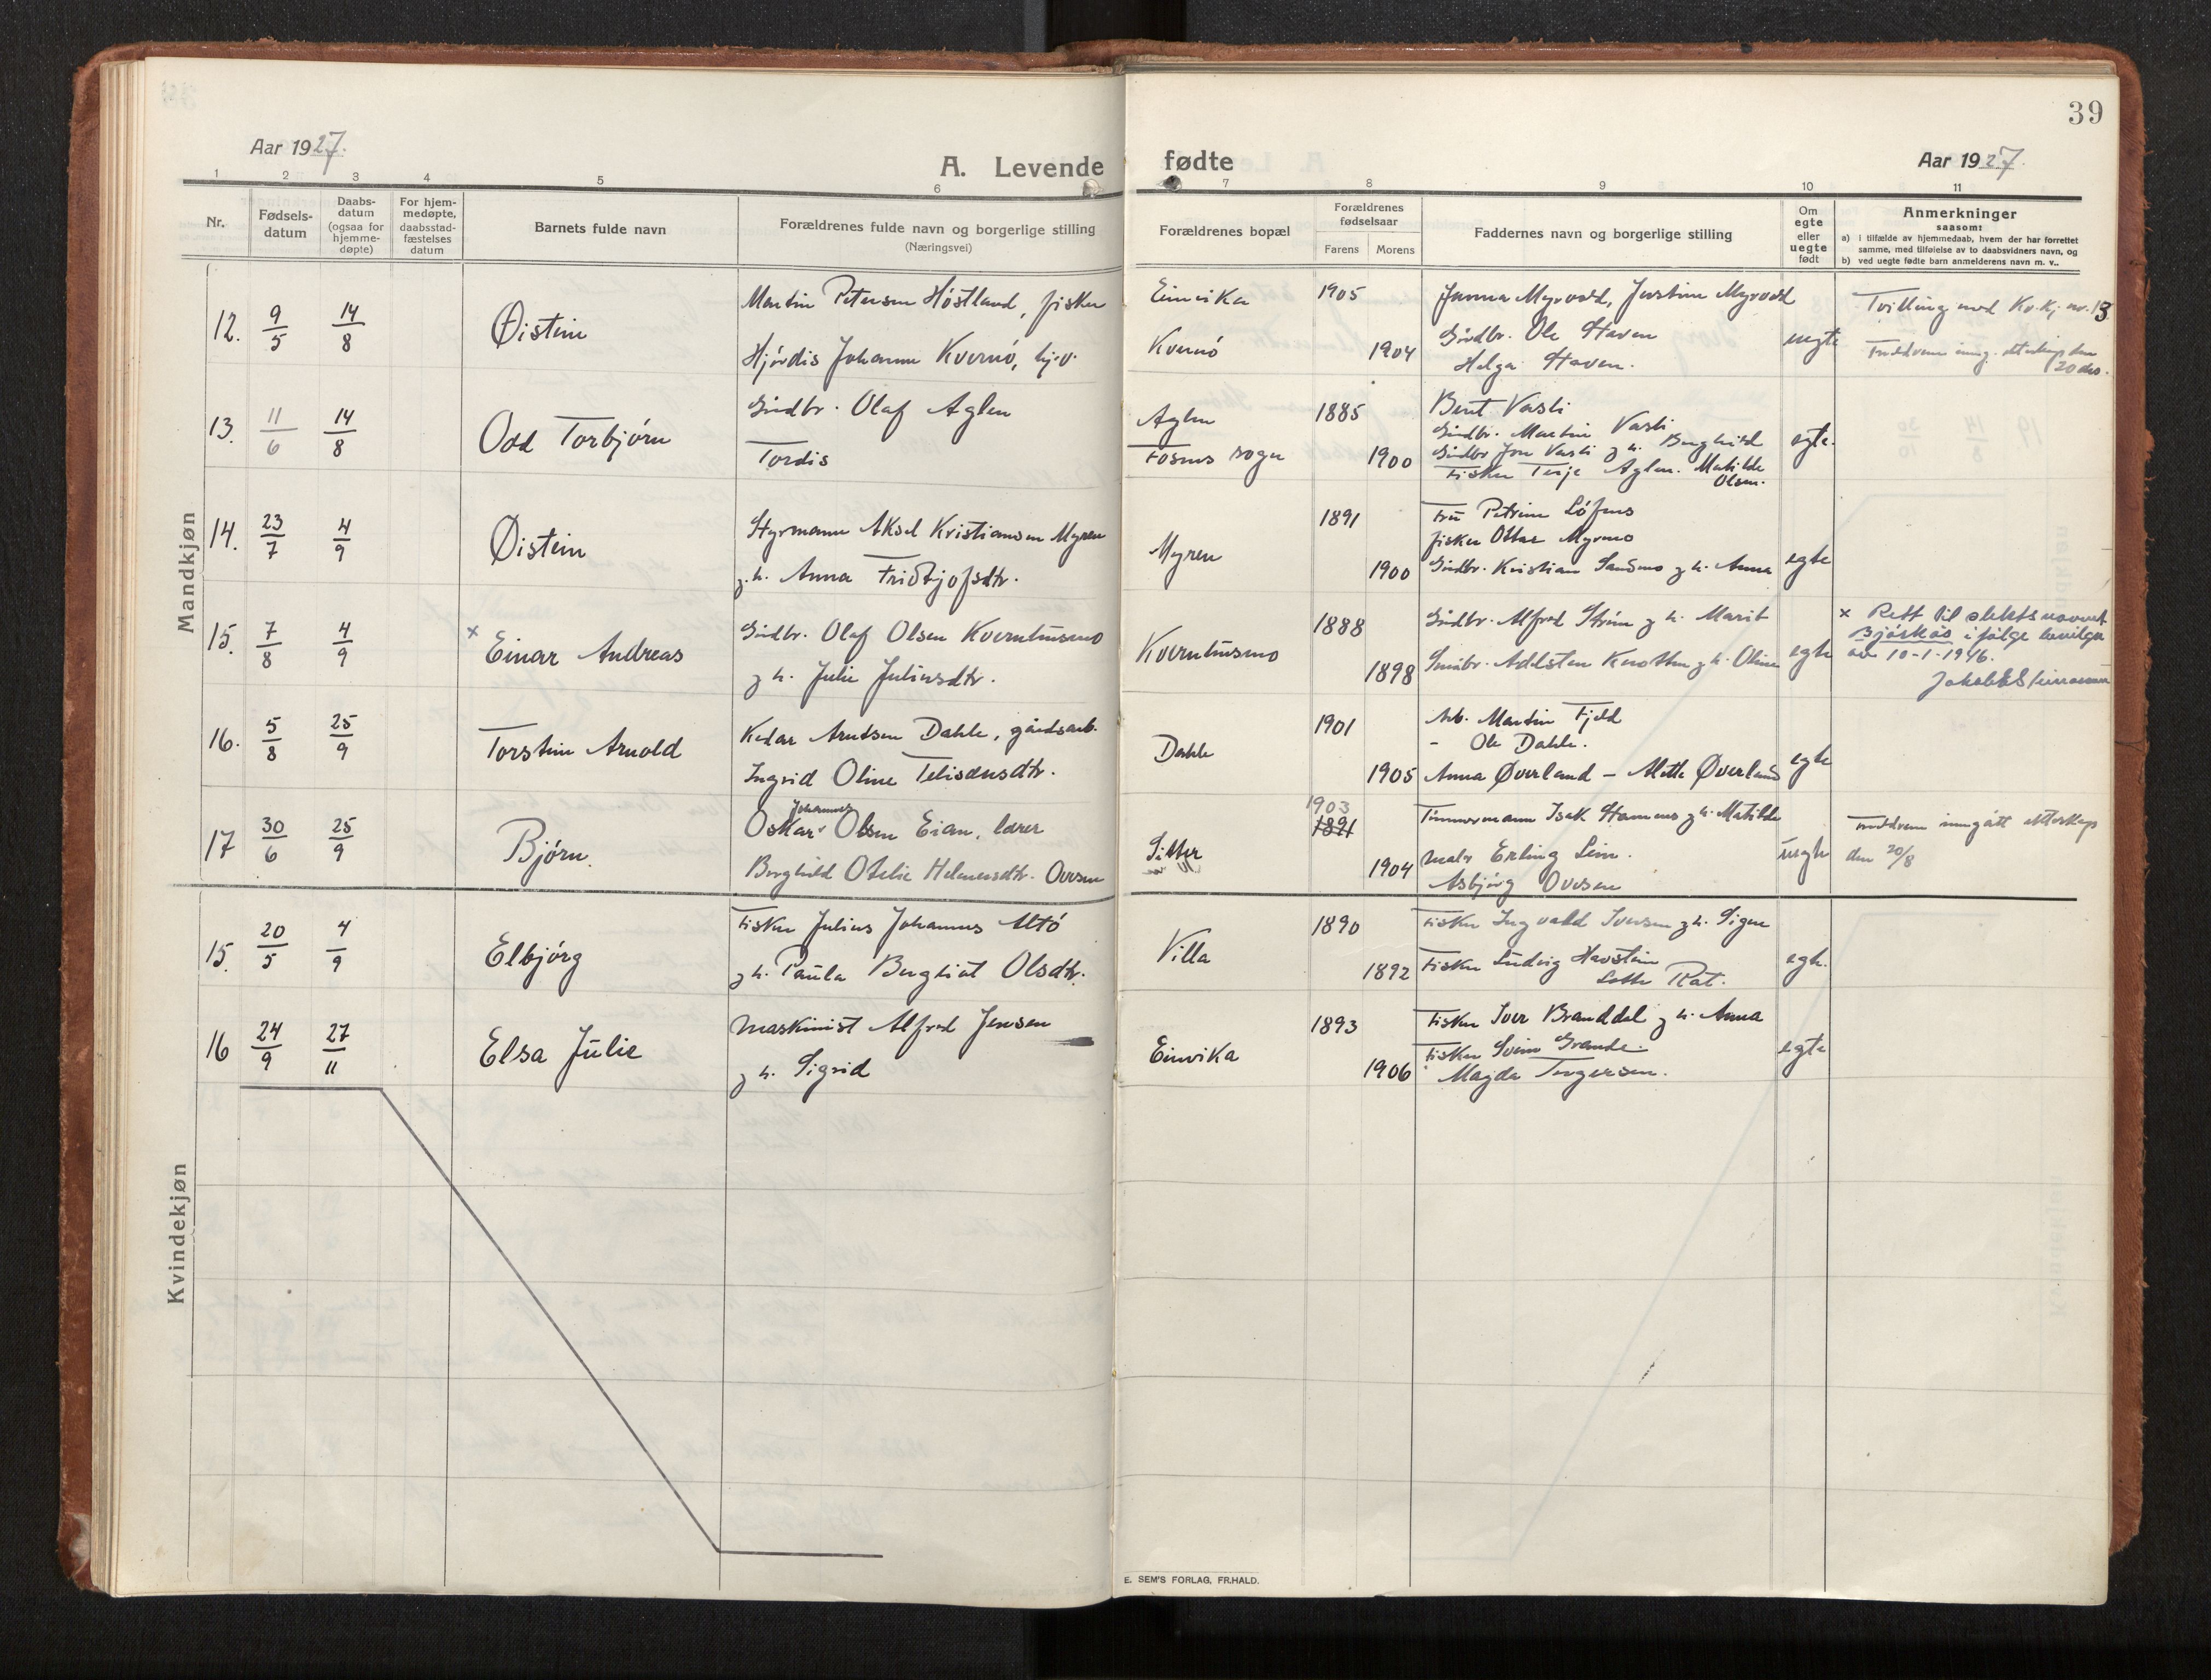 39
Aar 1927.
A. Levende fødte
Aar 1927.
1 2 3 4 5 6 7 8 9 10 11
Nr.
Fødselsdatum
Daabsdatum (ogsaa for hjemmedøpte)
For hjemmedøpte, daabsstadfæstelses datum
Barnets fulde navn
Forældrenes fulde navn og borgerlige stilling
(Næringsvei)
Forældrenes bopæl
Forældrenes fødselsaar
Farens Morens
Faddernes navn og borgerlige stilling
Om egte eller uegte født
Anmerkninger
saasom:
a) i tilfælde av hjemmedaab, hvem der har forrettet samme, med tilføielse av to daabsvidners navn, og
b) ved uegte fødte barn anmelderens navn m. v..
Mandkjøn
12. 9/5 14/8 Øistein
Martin Petersen Høstland, fisker
Hjørdis Johanne Kvernø, hj.v.
Einvika
Kvernø
1905
1904
Jenna Myrvold, Justine Myrvold
Gårdbr. Ole Staven
Helga Staven.
uegte
Tvilling med Kv.kj. nr. 13
20 ds.
13. 11/6 14/8 Odd Torbjørn
Gårdbr. Olaf Aglen
Tordis
Aglen
Fosnes sogn
1885
1900
Bent Vasli
Gårdbr. Martin Vasli
Gårdbr Jon Vasli g h. Borghild
Fisker Terje Aglen. Matilde
Olsen.
egte.
14. 23/7 4/9 Øistein
Styrmann Aksel Kristiansen Myren
g. h. Anna Fridtjofsdtr.
Myren
1891
1900
Fru Petrine Løfsnes
fisker Ottar Myrmo
Gårdbr. Kristian Sandmo g h. Anna
egte
15. 7/8 4/9 × Einar Andreas
Gårdbr. Olaf Olsen Kverntusmo
g h. Julie Juliusdtr.
Kverntusmo
1888
1898
Gårdbr. Alfred Strøm g h. Marit
Småbr. Adelsten Knotten g h. Oline
egte
× Rett til slektsnavnet
Bjøskås ifølge bevilgn
av 10-1-1946.
16. 5/8 25/9 Torstein Arnold
Kedar Arntsen Dahle, gårdsarb.
Ingrid Oline Telisæusdtr.
Dahle
1901
1905
Arb. Martin Fjeld
- Ole Dahle.
Anna Øverland - Alette Øverland
egte
17 30/6 25/9 Bjørn.
Johannes
Oskar Olsen Eian, lærer
Borghild Otelie Helmersdtr. Ovesen
Sitter
1903
1891
1904
Tømmermann Isak Hamnes g h. Matilde
Maler Erling Lein.
Asbjørg Ovesen
uegte
Foreldrene inngått ekteskap
den 20/8
Kvindekjøn
15. 20/5 4/9 Elbjørg
Fisker Julius Johannes Altø
g h. Paula Bergliot Olsdtr.
Villa
1890
1892
Fisker Ingvald Iversen g h. Signe
Fisker Ludvig Havstein
Lotte Rat.
egte.
16 24/9 27/11 Elsa Julie
Maskinist Alfred Jensen
g h. Sigrid
Einvika
1893
1906
Fisker Iver Branddal g h. Anna
Fisker Svein Grande.
Magda Torgersen.
egte
E. SEM'S FORLAG, FR.HALD.